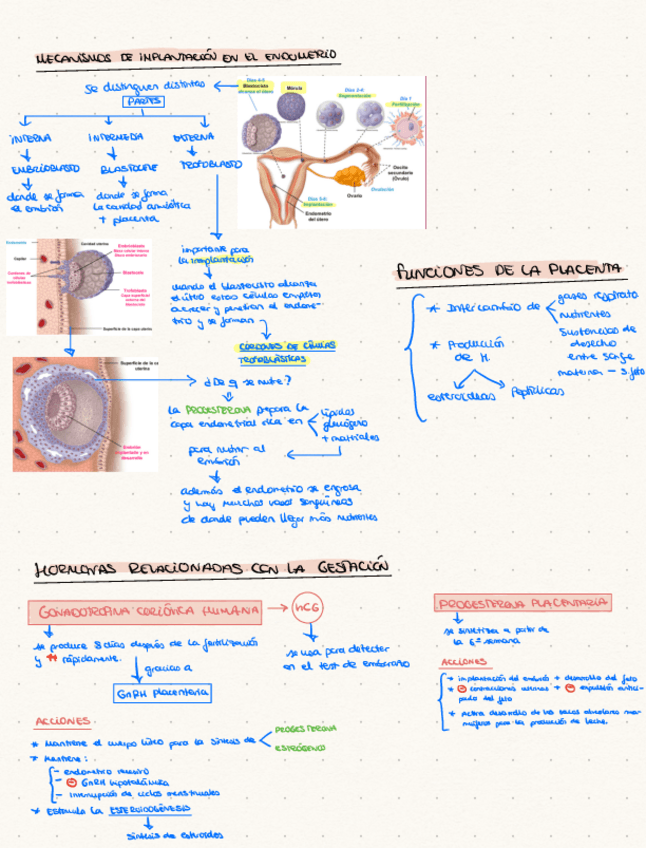 MECANISMOS DE IMPLANTACIÓN EN EL ENDOMETRIO
se distinguen distintas
PARTES
INTERNA
EMBRIOBLASTO
donde se forma
el embrión
INTERMEDIA
BLASTOCELE
donde se forma
la cavidad amniótica
+ placenta
EXTERNA
TROFOBLASTO
Días 4-5
Blastocisto
alcanza el útero
Mórula
Días 2-4:
Segmentación
Día 1
Fertilización
Ovocito
secundario
(Óvulo)
Ovulación
Ovario
Días 5-8:
Implantación
Endometrio
del útero
importante para
la implantación
cuando el blastocisto alcanza
el útero estas células empiezan
a crecer y penetran el endome-
trio y se forman
CORDONES DE CÉLULAS
TROFOBLÁSTICAS
Endometrio
Cavidad uterina
Capilar
Cordones de
células
trofoblásticas
Blastocele
Trofoblasto
Capa superficial
externa del
blastocisto
Superficie de la capa uterina
Superficie de la ca
uterina
Embrión
implantado y en
desarrollo
¿De q se nutre?
la PROGESTERONA prepara la
capa endometrial rica en
lípidos
glucógeno
+ matriales
para nutrir al
embrión
además el endometrio se engrosa
y hay muchos vasos sanguíneos
de donde pueden llegar más nutrientes
FUNCIONES DE LA PLACENTA
* Intercambio de
gases respirato
nutrientes
Sustancias de
desecho
entre sangre
materna — s. feto
* Producción
de H.
esteroideas
Peptídicas
HORMONAS RELACIONADAS CON LA GESTACIÓN
GONADOTROFINA CORIÓNICA HUMANA → hCG
se produce 8 días después de la fertilización
y ↑↑ rápidamente.
gracias a
GnRH placentaria
se usa para detectar
en el test de embarazo
ACCIONES
* Mantiene el cuerpo lúteo para la síntesis de
PROGESTERONA
ESTRÓGENO
* Mantiene:
- endometrio
- ⊖ GnRH hipotalámica
- interrupción de ciclos menstruales
* Estimula la ESTEROIDOGÉNESIS
síntesis de esteroides
PROGESTERONA PLACENTARIA
se sintetiza a partir de
la 6ª semana
ACCIONES
* implantación del embrión + desarrollo del feto
* ⊖ contracciones uterinas + ⊖ expulsión antici-
pada del feto
* Activa desarrollo de los sacos alveolares ma-
marios para la producción de leche.